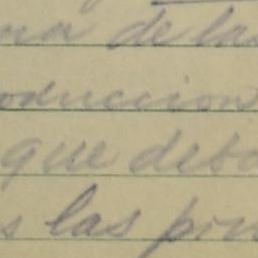 na de las
oduccion
que deb
s las pin